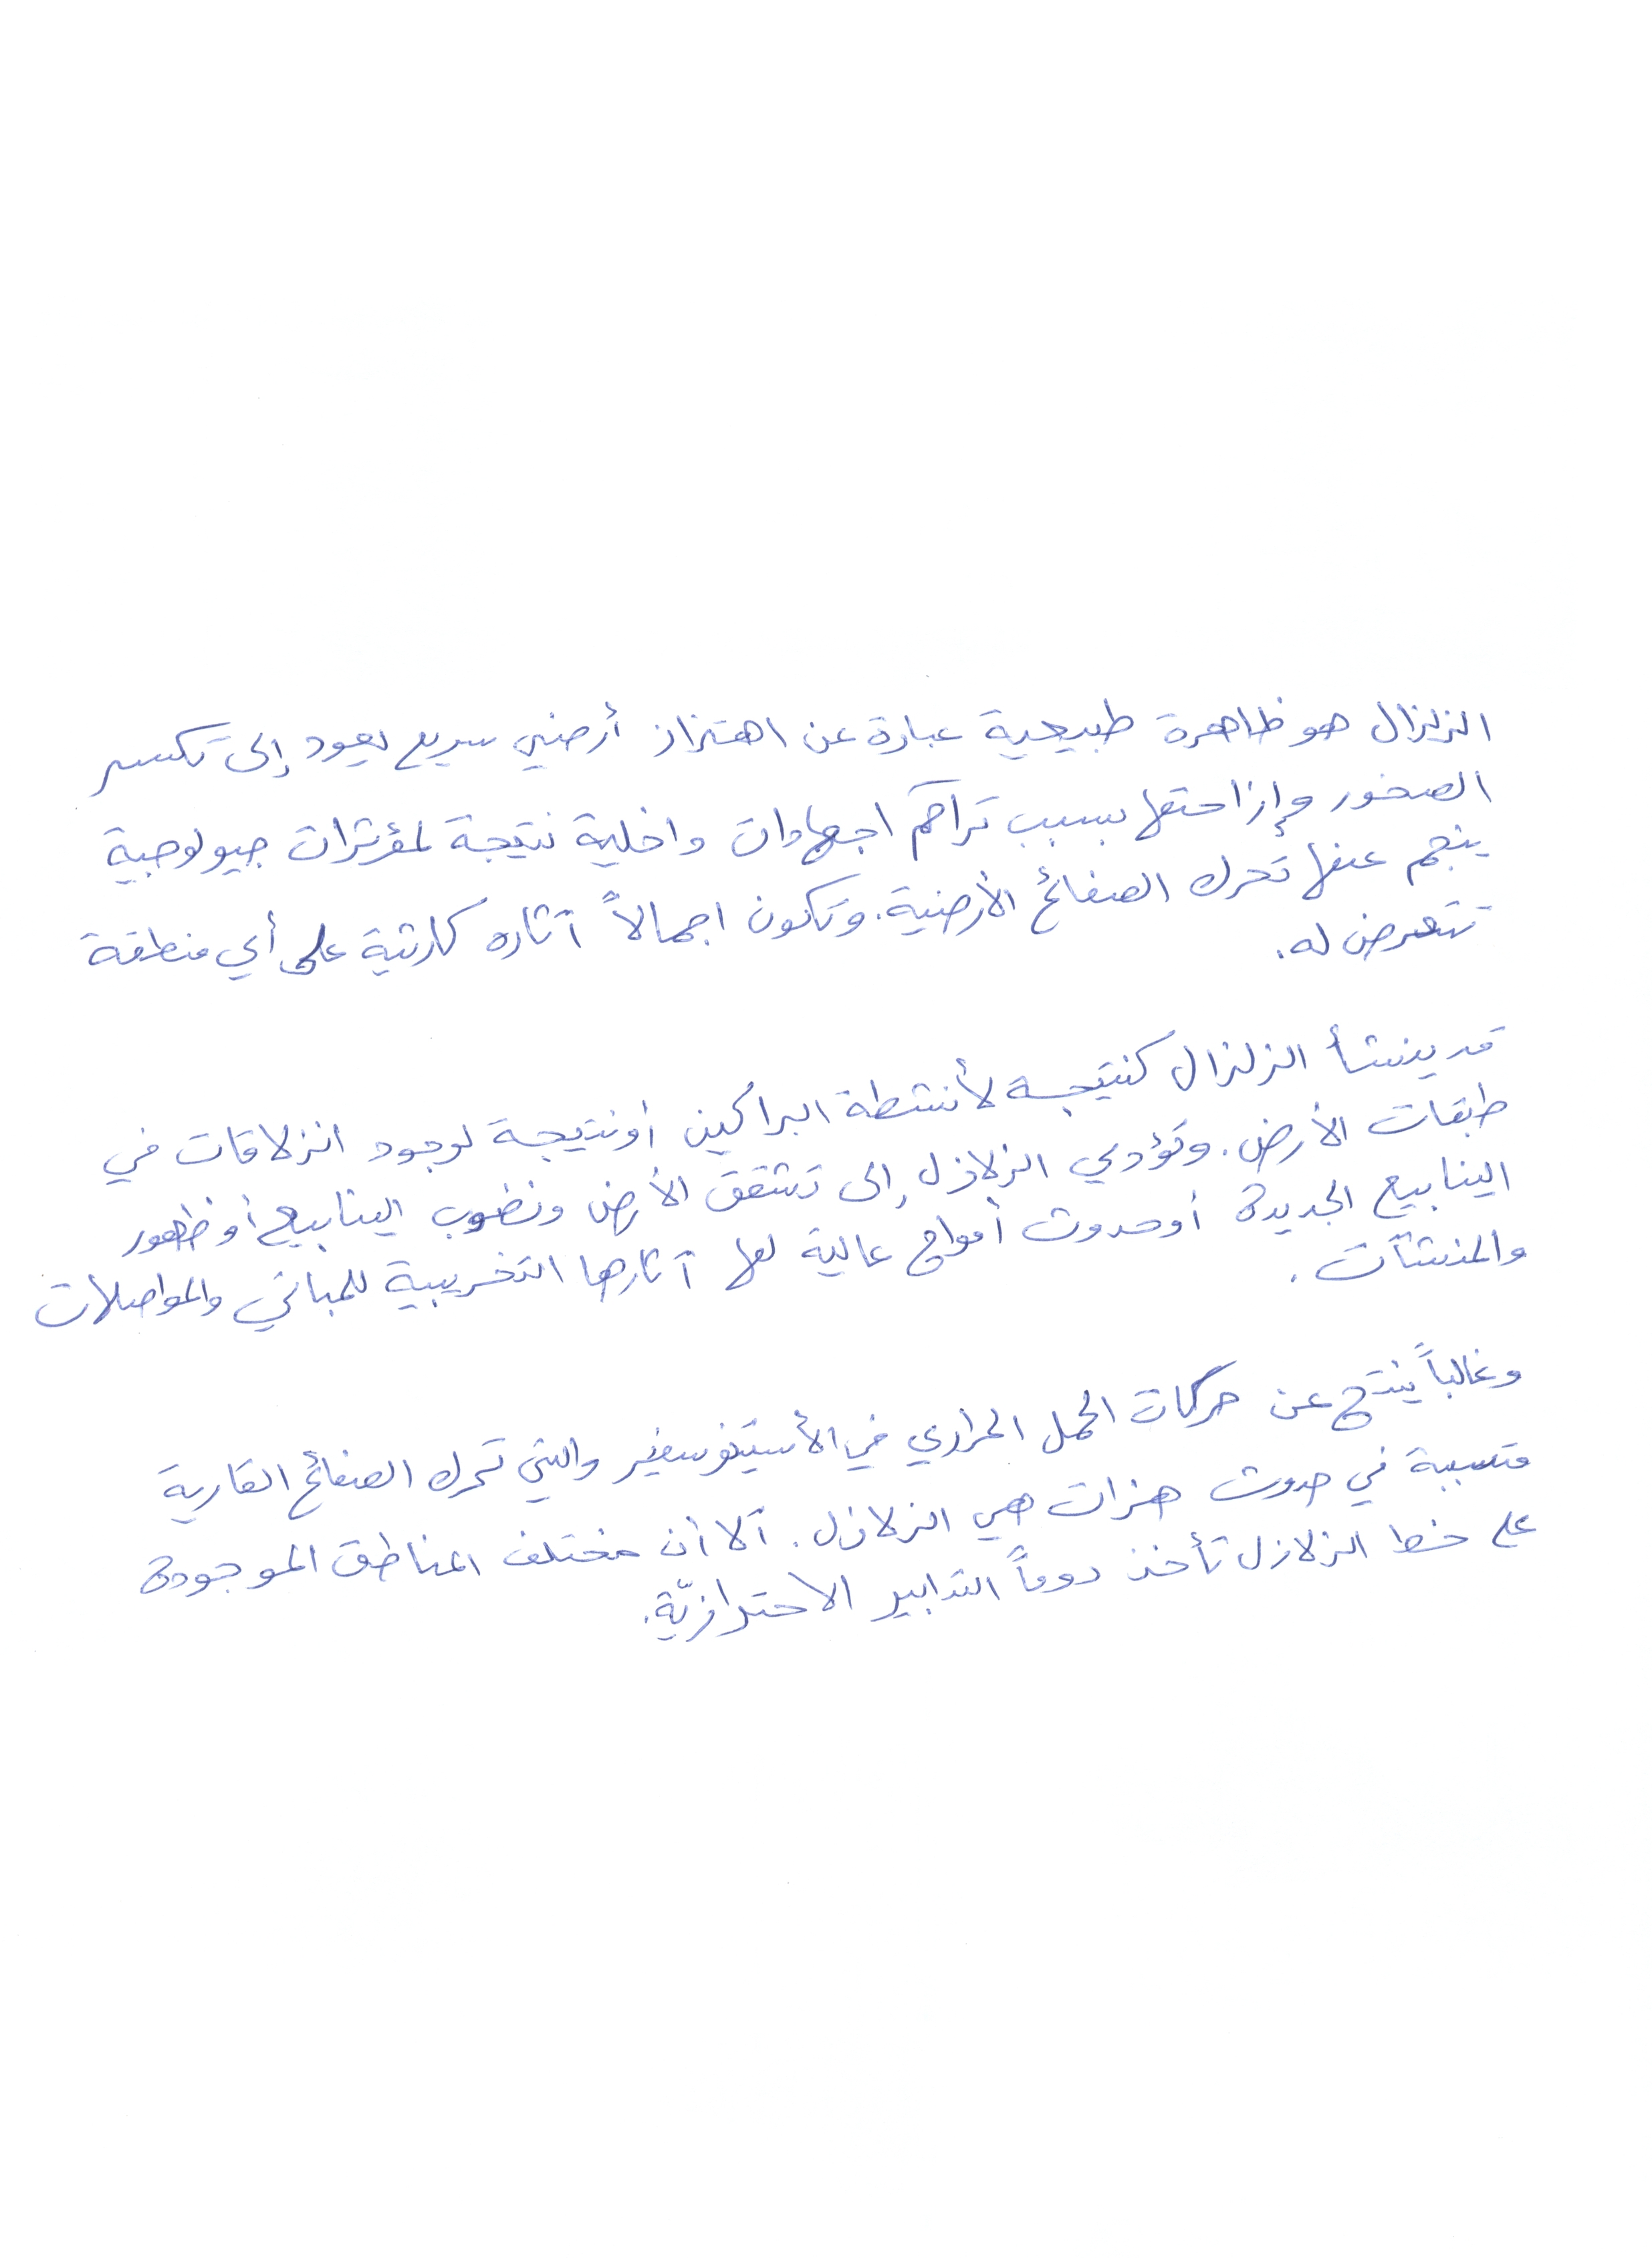 الزلزال هو ظاهرة طبيعية عبارة عن اهتزاز أرضي سريع يعود إلى تكسر
الصخور وإزاحتها بسبب تراكم اجهادات داخلية نتيجة لمؤثرات جيولوجية
ينجم عنها تحرك الصفائح الأرضية. وتكون اجمالاً آثاره كارثية على أي منطقة
تتعرض له.
قد ينشأ الزلزال كنتيجة لأنشطة البراكين أو نتيجة لوجود انزلاقات في
طبقات الأرض. وتؤدي الزلازل إلى تشقق الأرض ونضوب الينابيع أو ظهور
الينابيع الجديدة أو حدوث أمواج عالية لها آثارها التخريبية للمباني والمواصلات
والمنشآت.
وغالباً ينتج عن حركات الحمل الحراري في الأسينوسفير والتي تحرك الصفائح القارية
متسببة في حدوث هزات هي الزلازل. آلا أن مختلف المناطق الموجودة
على خط الزلازل تأخذ دوماً التدابير الاحترازيّة.